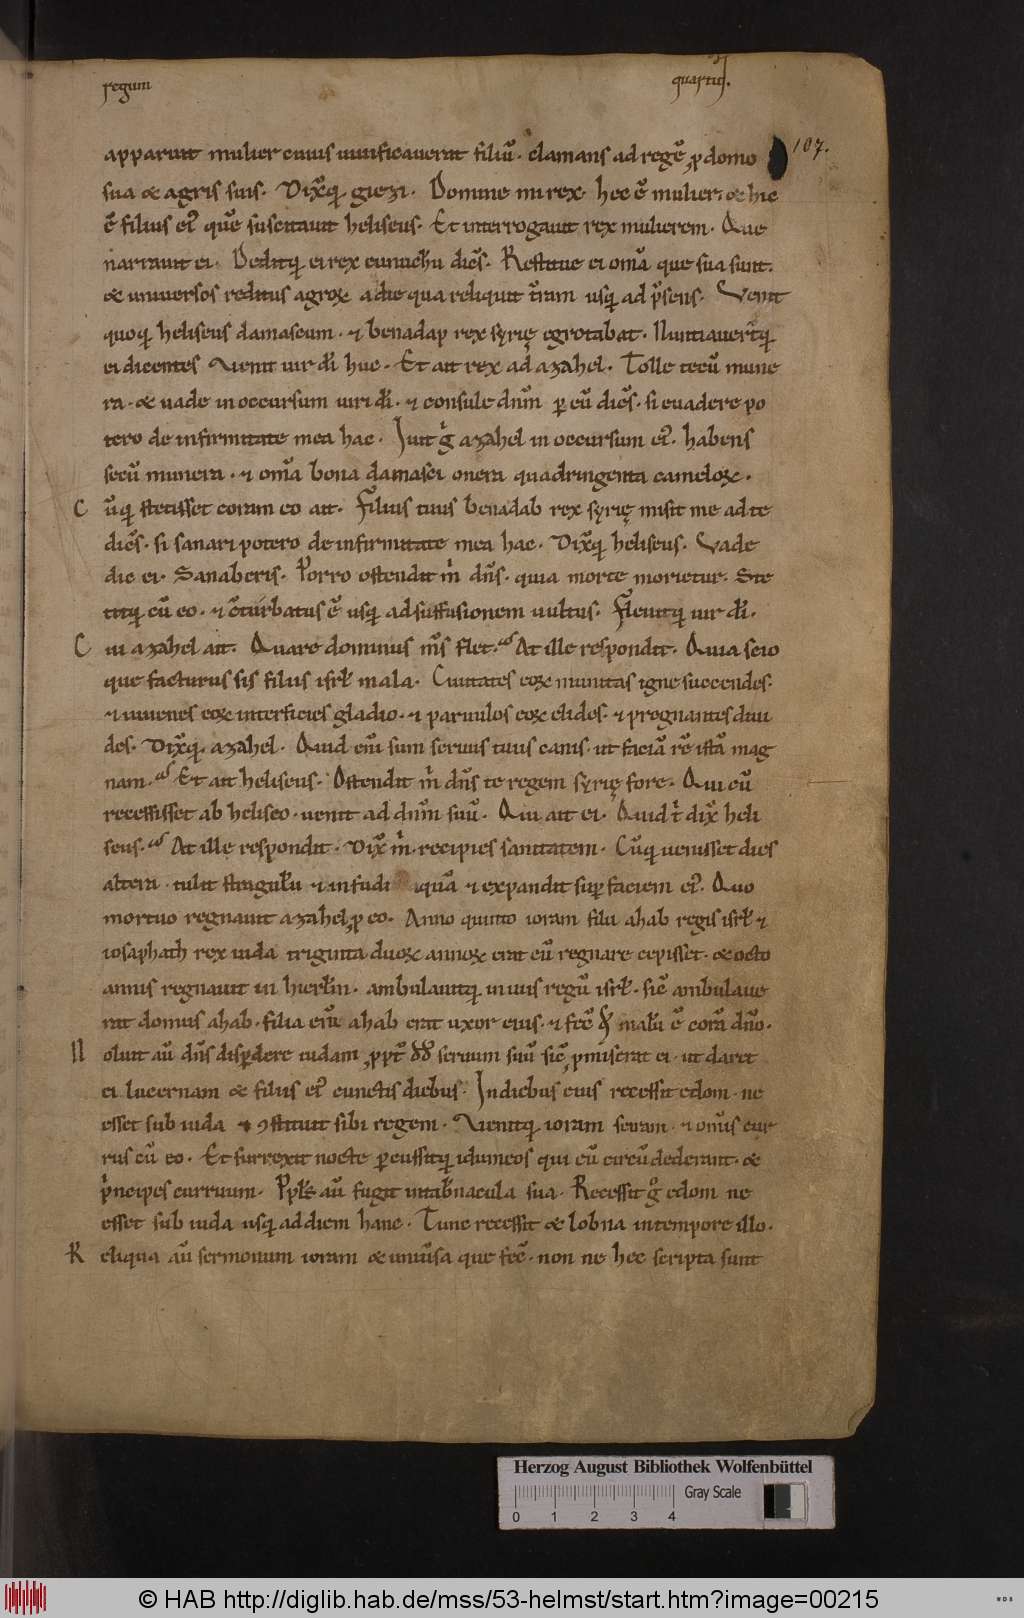 regum quartus.
107.
apparuit mulier cuius uiuificauerat filiū. clamans ad regē ꝓ domo
sua & agris suis. Dixq; giezi. Domine mi rex. hec ē mulier. & hic
ē filius ei' quē suscitauit heliseus. Et interrogauit rex mulierem. Que
narrauit ei. Deditq; ei rex eunuchū dicēs. Restitue ei om̄a que sua sunt.
& uniuersos reditus agroꝝ a die qua reliquit t̄ram usq; ad p̄sens. Venit
quoq; heliseus damascum. ⁊ benadap rex syrię egrotabat. Nuntiauer̄tq;
ei dicentes Venit uir dī huc. Et ait rex ad azahel. Tolle tecū mune
ra. & uade in occursum uiri dī. ⁊ consule dn̄m ꝑ eū dicēs. si euadere po
tero de infirmitate mea hac. Iuit g̊ azahel in occursum ei'. habens
secū munera. ⁊ om̄a bona damasci onera quadringenta cameloꝝ.
C ūq; stetisset coram eo ait. Filius tuus benadab rex syrię misit me ad te
dicēs. si sanari potero de infirmitate mea hac. Dixq; heliseus. Vade
dic ei. Sanaberis. Porro ostendit m̄ dn̄s. quia morte morietur. Ste
titq; cū eo. ⁊ c̄turbatus ē usq; ad suffusionem uultus. Fleuitq; uir dī.
C ui azahel ait. Quare dominus m̄s flet. At ille respondit. Quia scio
que facturus sis filiis isrl̄ mala. Ciuitates eoꝝ munitas igne succendes.
⁊ iuuenes eoꝝ interficies gladio. ⁊ paruulos eoꝝ elides. ⁊ pregnantes diui
des. Dixq; azahel. Quid eni sum seruus tuus canis. ut faciā rē istā mag
nam. Et ait heliseus. Ostendit m̄ dn̄s te regem syrię fore. Qui cū
recessisset ab heliseo. uenit ad dn̄m suū. Qui ait ei. Quid t̄ dix̄ heli
seus. At ille respondit. Dix̄ m̄. recipies sanitatem. Cūq; uenisset dies
altera. tulit stragulū ⁊ infudi aquā ⁊ expandit sup̄ faciem ei'. Quo
mortuo regnauit azahel ꝓ eo. Anno quinto ioram filii ahab regis isrl̄ ⁊
iosaphath rex iuda triginta duoꝝ annoꝝ erat cū regnare cepisset. & octo
annis regnauit in hierl̄m. ambulauitq; in uiis regū isrl̄. sic̄ ambulaue
rat domus ahab. filia eni ahab erat uxor eius. ⁊ fec̄ qd̄ malū ē corā dn̄o.
N oluit aū dn̄s disꝑdere iudam ꝓpt̄ dd̄ seruum suū sic̄ ꝓmiserat ei. ut daret
ei lucernam & filiis ei' cunctis diebus. In diebus eius recessit edom. ne
esset sub iuda ⁊ ꝯstituit sibi regem. Venitq; ioram seiram. ⁊ om̄is cur
rus cū eo. Et surrexit nocte ꝑcussitq; idumeos qui eū circūdederant. &
p̄ncipes curruum. Ppl̄s aū fugit in tab̄nacula sua. Recessit g̊ edom ne
esset sub iuda usq; ad diem hanc. Tunc recessit & lobna in tempore illo.
R eliqua aū sermonum ioram & uniūsa que fec̄. non ne hec scripta sunt
Herzog August Bibliothek Wolfenbüttel
Gray Scale
0 1 2 3 4
© HAB http://diglib.hab.de/mss/53-helmst/start.htm?image=00215